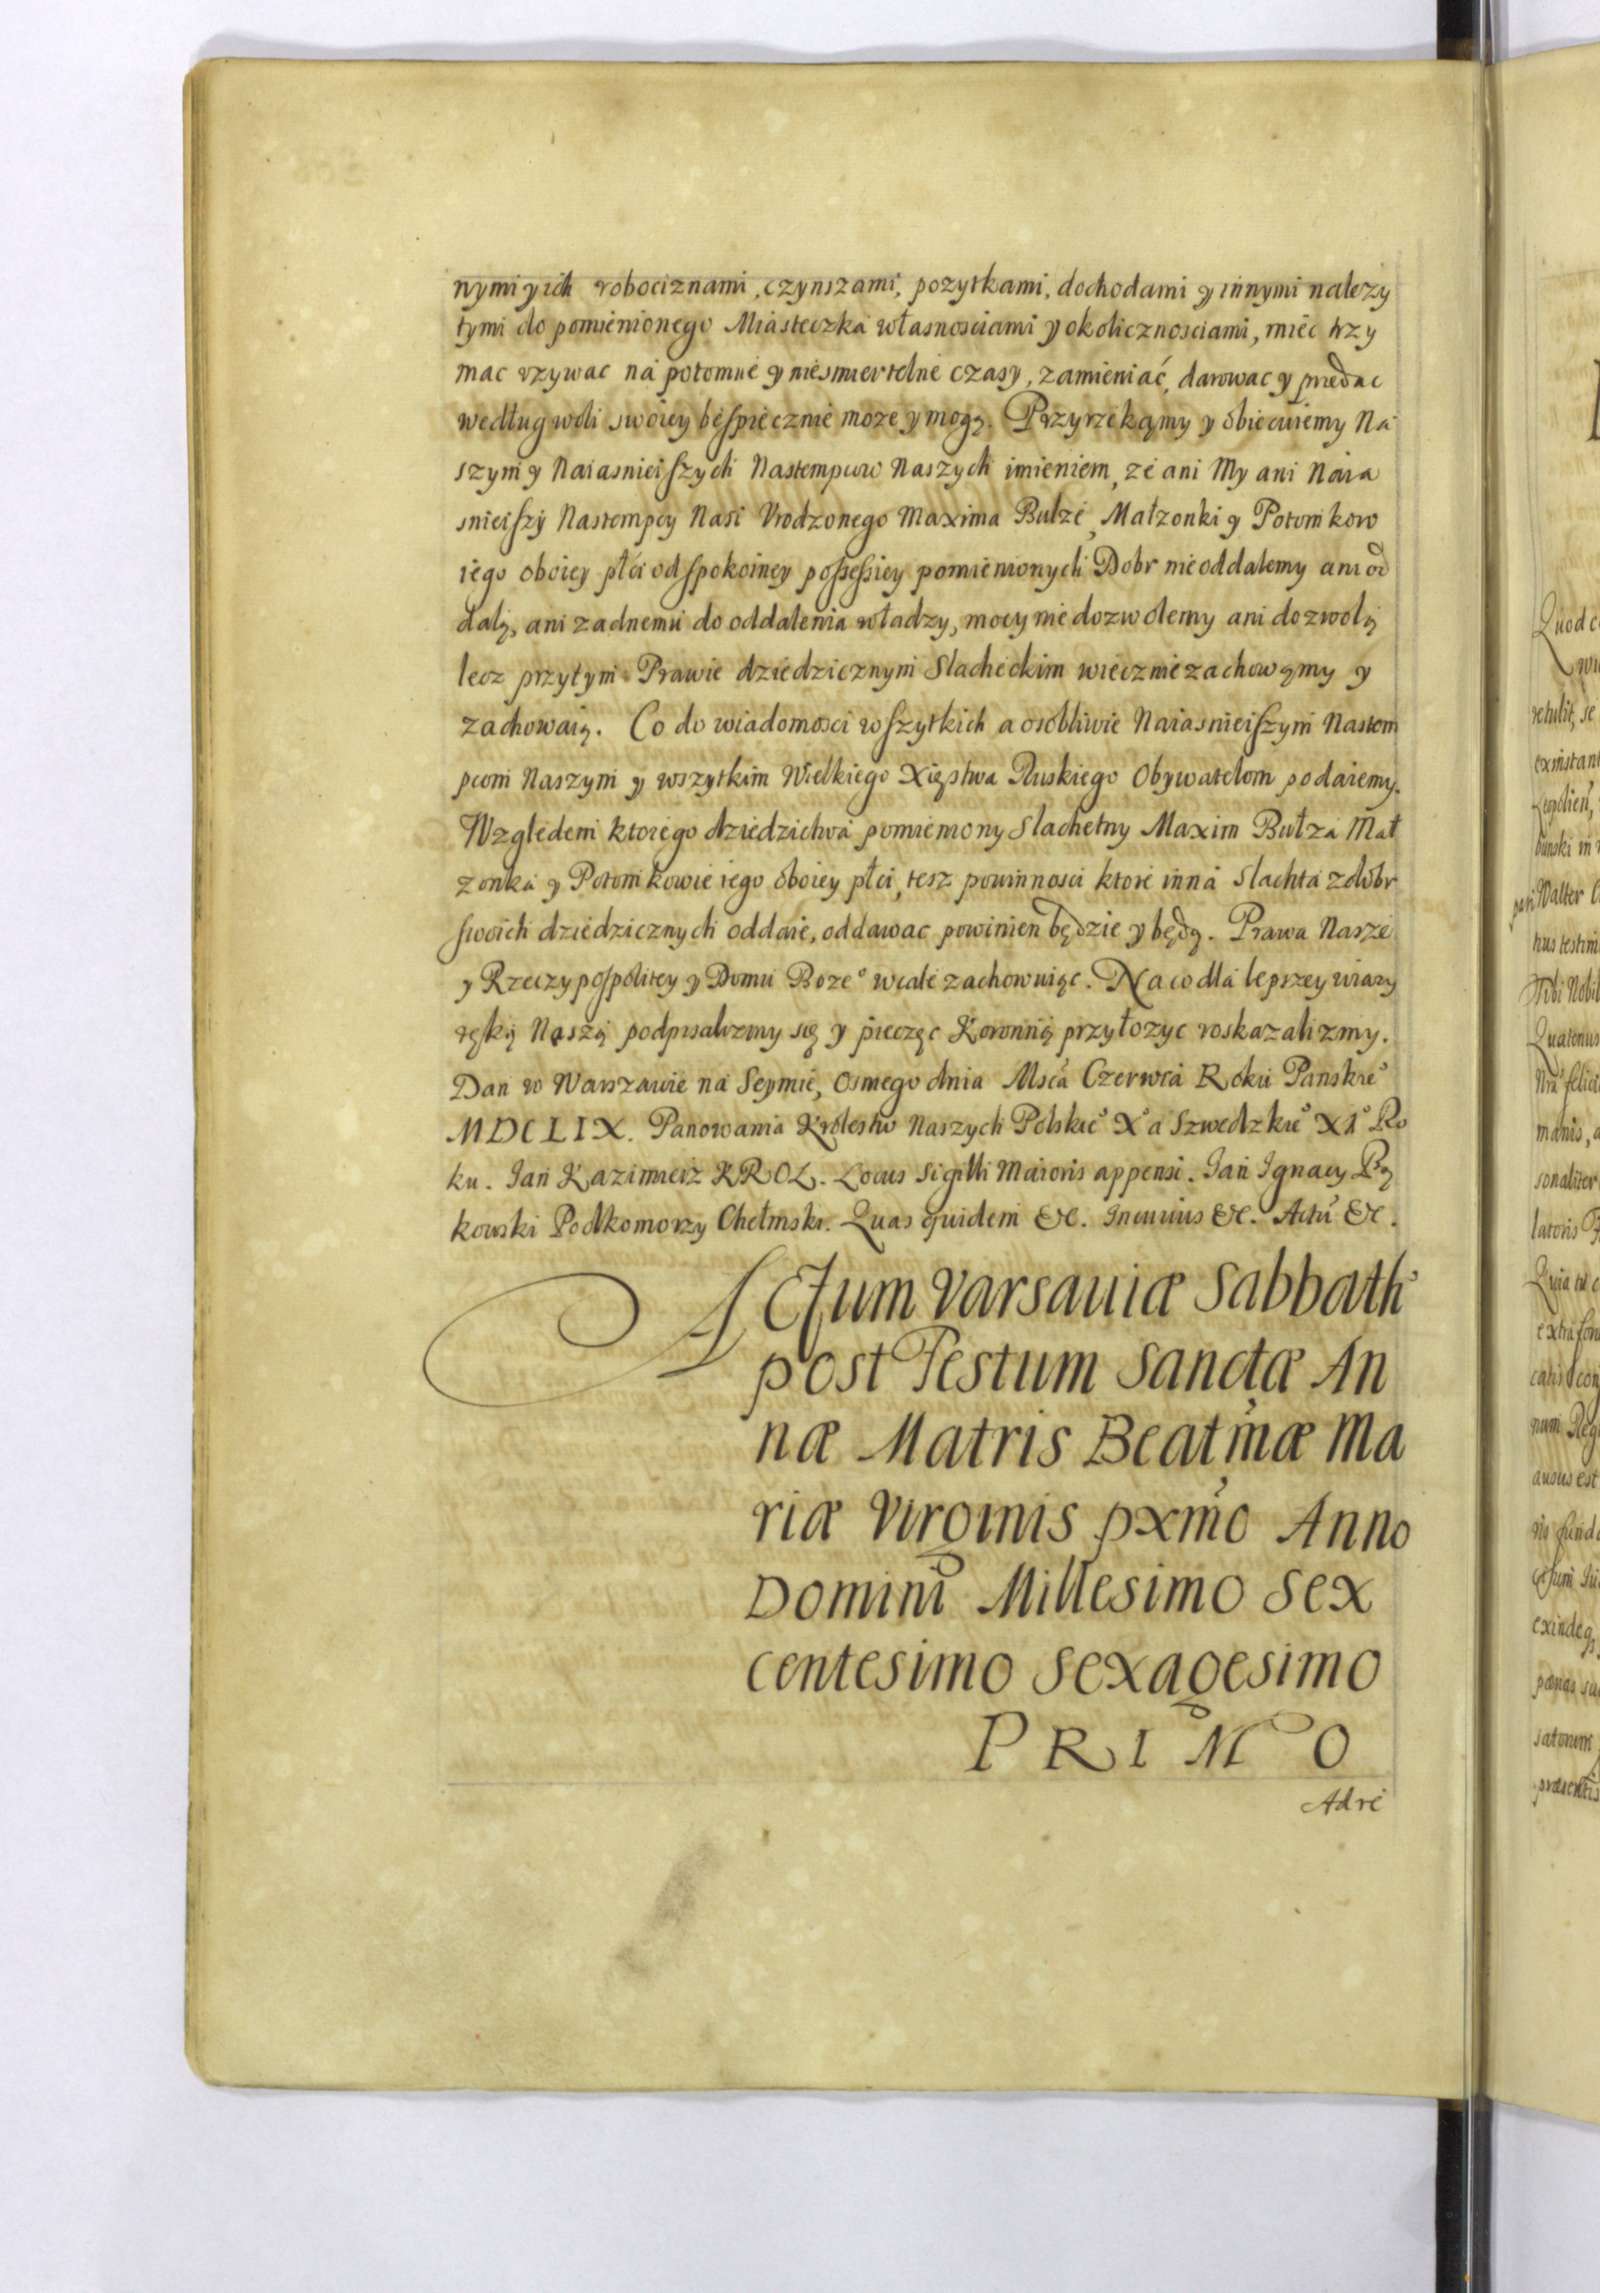 nymi y ich robociznami, czynszami, pozytkami, dochodami y innymi nalezy
tymi do pomienionego Miasteczka własnosciami y okolicznosciami, miec trzy
mac vzywac na potomne y niesmiertelne czasy, zamieniać, darowac y przedac
według woli swoiey bespiecznie moze y mogą. Przyrzekamy y obiecuiemy Na
szym y Naiasnieiszych Nastempcow Naszych imieniem, ze ani My ani Naia
snieiszy Nastempcy Nasi Vrodzonego Maxima Bułze, Małzonki y Potomkow
iego oboiey płci od spokoiney possessiey pomienionych Dobr nie oddalemy ani od
dalą, ani zadnemu do oddalenia władzy, mocy nie dozwolemy ani dozwolą
lecz przytym Prawie dziedzicznym Slacheckim wiecznie zachowamy y
zachowaią. Co do wiadomosci wszytkich a osobliwie Naiasnieiszym Nastem
pcom Naszym y wszytkim Wielkiego Xięstwa Ruskiego Obywatelom podaiemy.
Względem ktorego dziedzictwa pomieniony Slachetny Maxim Bułza Mał
zonka y Potomkowie iego oboiey płci, tesz powinnosci ktore inna Slachta z dobr
swoich dziedzicznych oddaie, oddawac powinien będzie y będą. Prawa Nasze
y Rzeczypospolitey y Domu Boze° wcale zachowuiąc. Na co dla lepszey wiary
ręką Naszą podpisalizmy się y pieczęc Koronną przyłozyc roskazalizmy.
Dan w Warszawie na Seymie, osmego dnia Msca Czerwca Roku Panskie°
MDCLIX. Panowania Krolestw Naszych Polskie° X° a Szwedzkie° XI° Ro
ku. Ian Kazimierz KROL. Locus Sigilli Maioris appensi. Ian Ignacy Bą
kowski Podkomorzy Chełmski. Quas quidem &c. In cuius &c. Actu &c.
Actum Varsauiæ Sabbath°
post Festum Sanctæ An
næ Matris Beatmæ Ma
riæ Virginis pxmo Anno
Domini Millesimo Sex
centesimo Sexagesimo
PRIMO
Adre